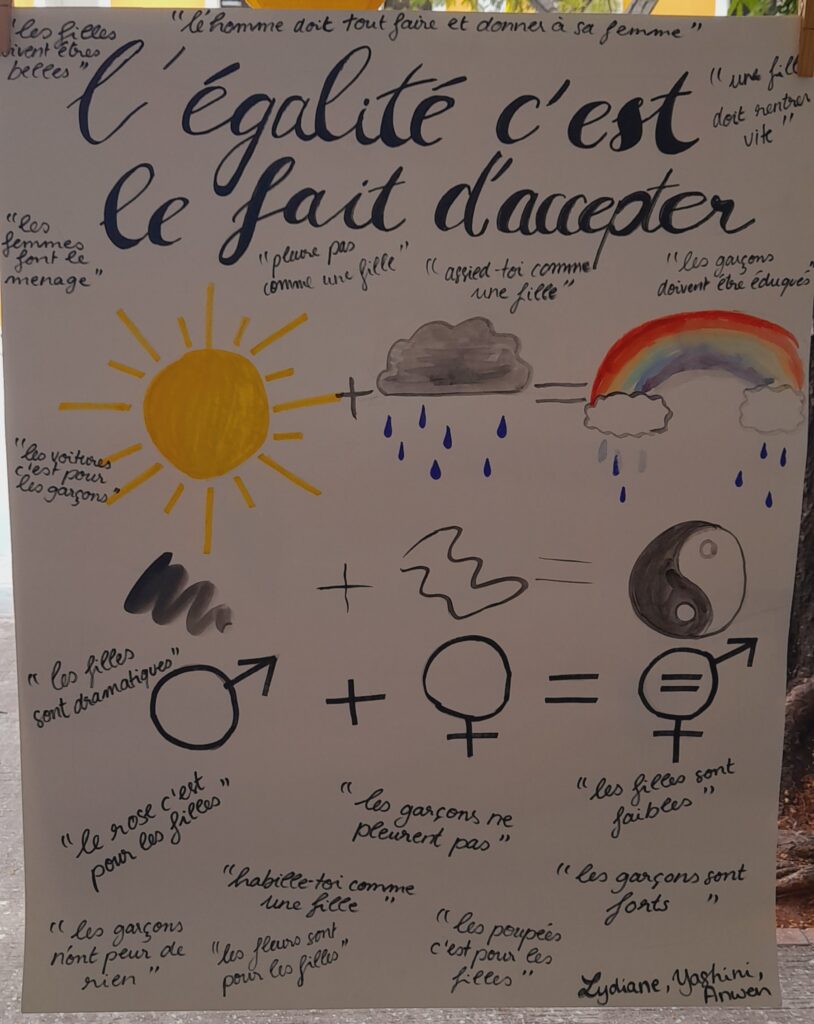 "les filles
doivent êtres
belles"
"l'homme doit tout faire et donner à sa femme"
l'égalité c'est
le fait d'accepter
"une fille
doit rentrer
vite"
"les
femmes
font le
menage"
"pleure pas
comme une fille"
"assied-toi comme
une fille"
"les garçons
doivent être éduqués"
+
=
"les voitures
c'est pour
les garçons"
+
=
"les filles
sont dramatiques"
+
=
=
"le rose c'est
pour les filles"
"les garçons ne
pleurent pas"
"les filles sont
faibles"
"habille-toi comme
une fille"
"les garçons sont
forts"
"les garçons
n'ont peur de
rien"
"les fleurs sont
pour les filles"
"les poupées
c'est pour les
filles"
Lydiane, Yashini,
Anwen